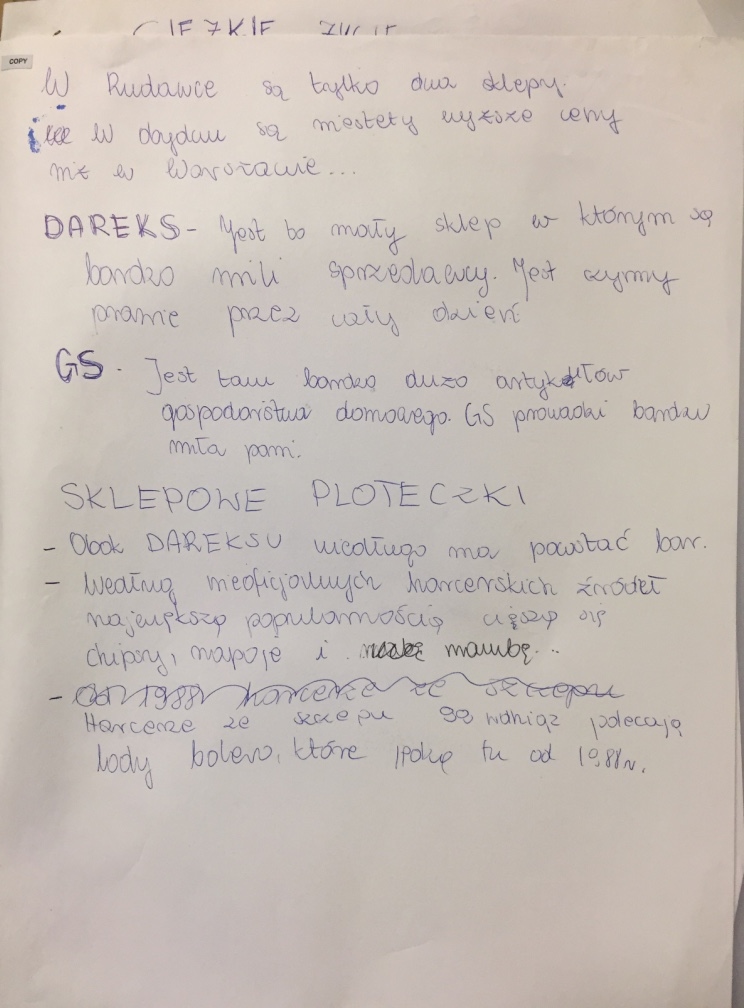 COPY
W Rudawce są tylko dwa sklepy.
W obydwu są niestety wyższe ceny
niż w Warszawie...
DAREKS - Jest to mały sklep w którym są
bardzo mili sprzedawcy. Jest czynny
prawie przez cały dzień
GS. Jest tam bardzo dużo artykułów
gospodarstwa domowego. GS prowadzi bardzo
miła pani.
SKLEPOWE PLOTECZKI
- Obok DAREKSU niedługo ma powstać bar.
- Według nieoficjalnych harcerskich źródeł
największą popularnością cieszą się
chipsy, napoje i mambę...
- Od 1988 harcerze ze szczepu
Harcerze ze szczepu wdniąż polecają
lody bolero, które są tu od 1988r.